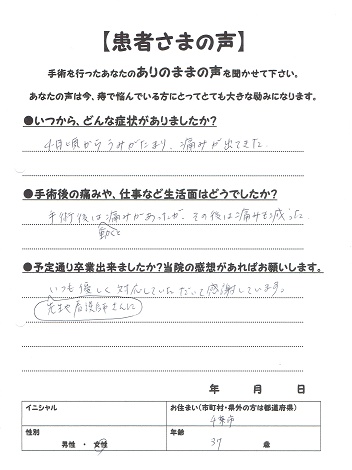 【患者さまの声】
手術を行ったあなたのありのままの声を聞かせて下さい。
あなたの声は今、痔で悩んでいる方にとってとても大きな励みになります。
●いつから、どんな症状がありましたか?
4月頃からうみがたまり、痛みが出てきた
●手術後の痛みや、仕事など生活面はどうでしたか?
手術後は痛みがあったが、その後は痛みも減った
動くと
●予定通り卒業出来ましたか?当院の感想があればお願いします。
いつも優しく対応していただいて感謝しています。
先生や看護師さんに
年 月 日
イニシャル
お住まい(市町村・県外の方は都道府県)
千葉市
性別
男性 ・ 女性
年齢
37 歳